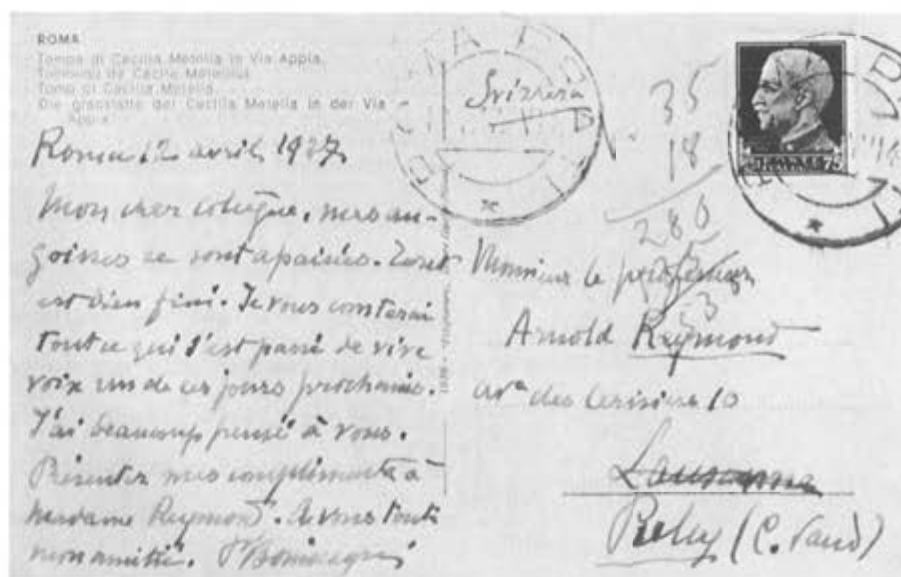 ROMA
Tomba di Cecilia Metella in Via Appia.
Tombeau de Cécile
Tomb of Cecilia Metella.
Die grabstätte der Cecilia Metella in der Via
Appia.
Svizzera
35
18
280
53
Roma 12 avril 1937
Mon cher collègue, mes an-
goisses se sont apaisées. Tout
est bien fini. Je vous conterai
tout ce qui s'est passé de vive
voix un de ces jours prochains.
J'ai beaucoup pensé à vous.
Présentez mes compliments à
Madame Reymond. A vous toute
mon amitié.
Monsieur le professeur
Arnold Reymond
av. des Cerisiers 10
Lausanne
Pully (C. Vaud)